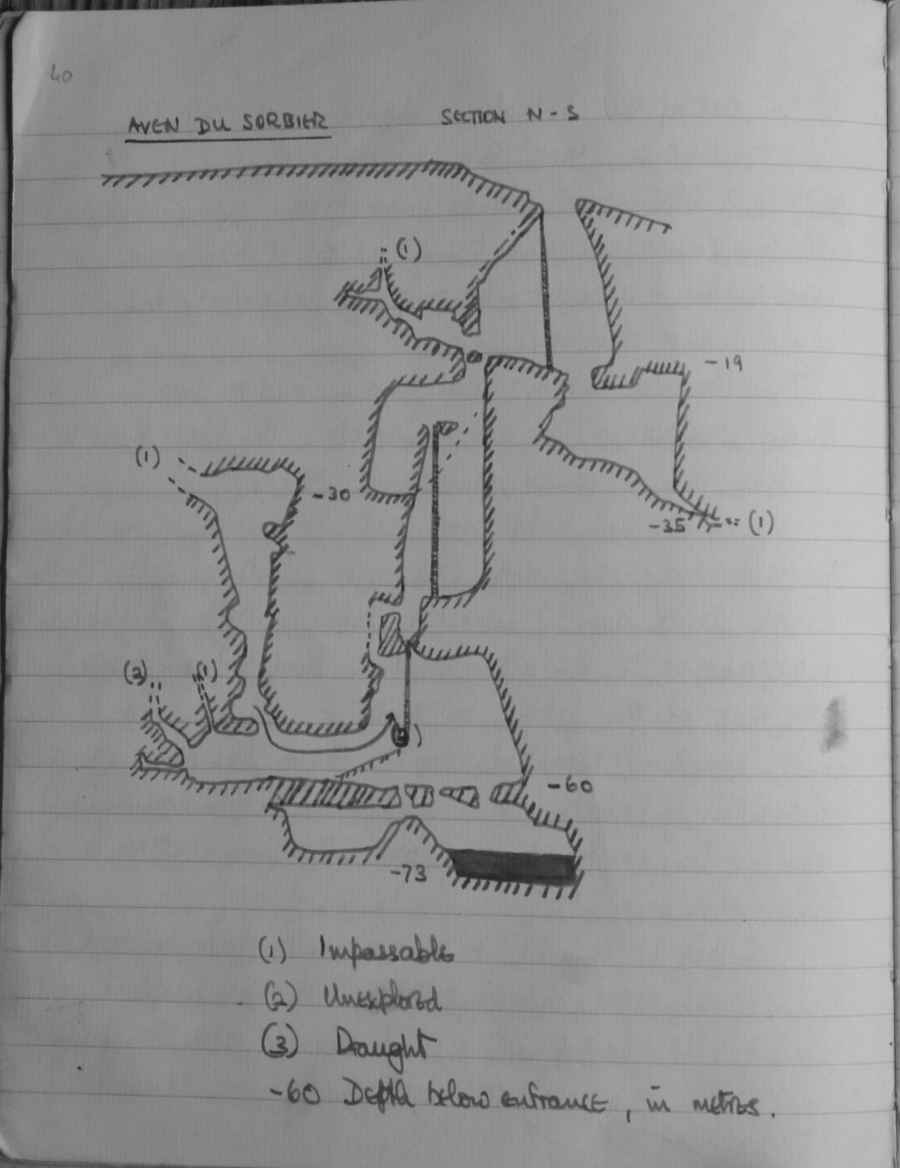 40
AVEN DU SORBIER SECTION N-S
(1)
-19
(1)
-30
-35 (1)
(1)
-60
-73
(1) Impassable
(2) Unexplored
(3) Draught
-60 Depth below entrance, in metres.